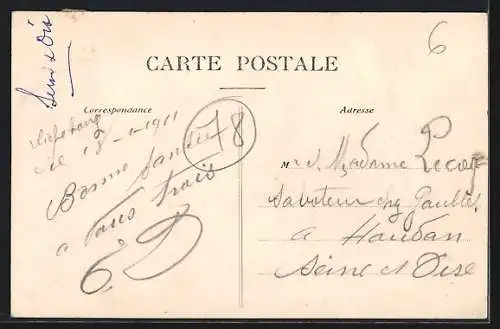 Seine & Oise
6
CARTE POSTALE
Correspondance
Adresse
le 18-1-1911
78
Bonne Santée
a Tous trois
M r & Madame Lecoq
Saboteur chez Gaullet
a Houdan
Seine et Oise